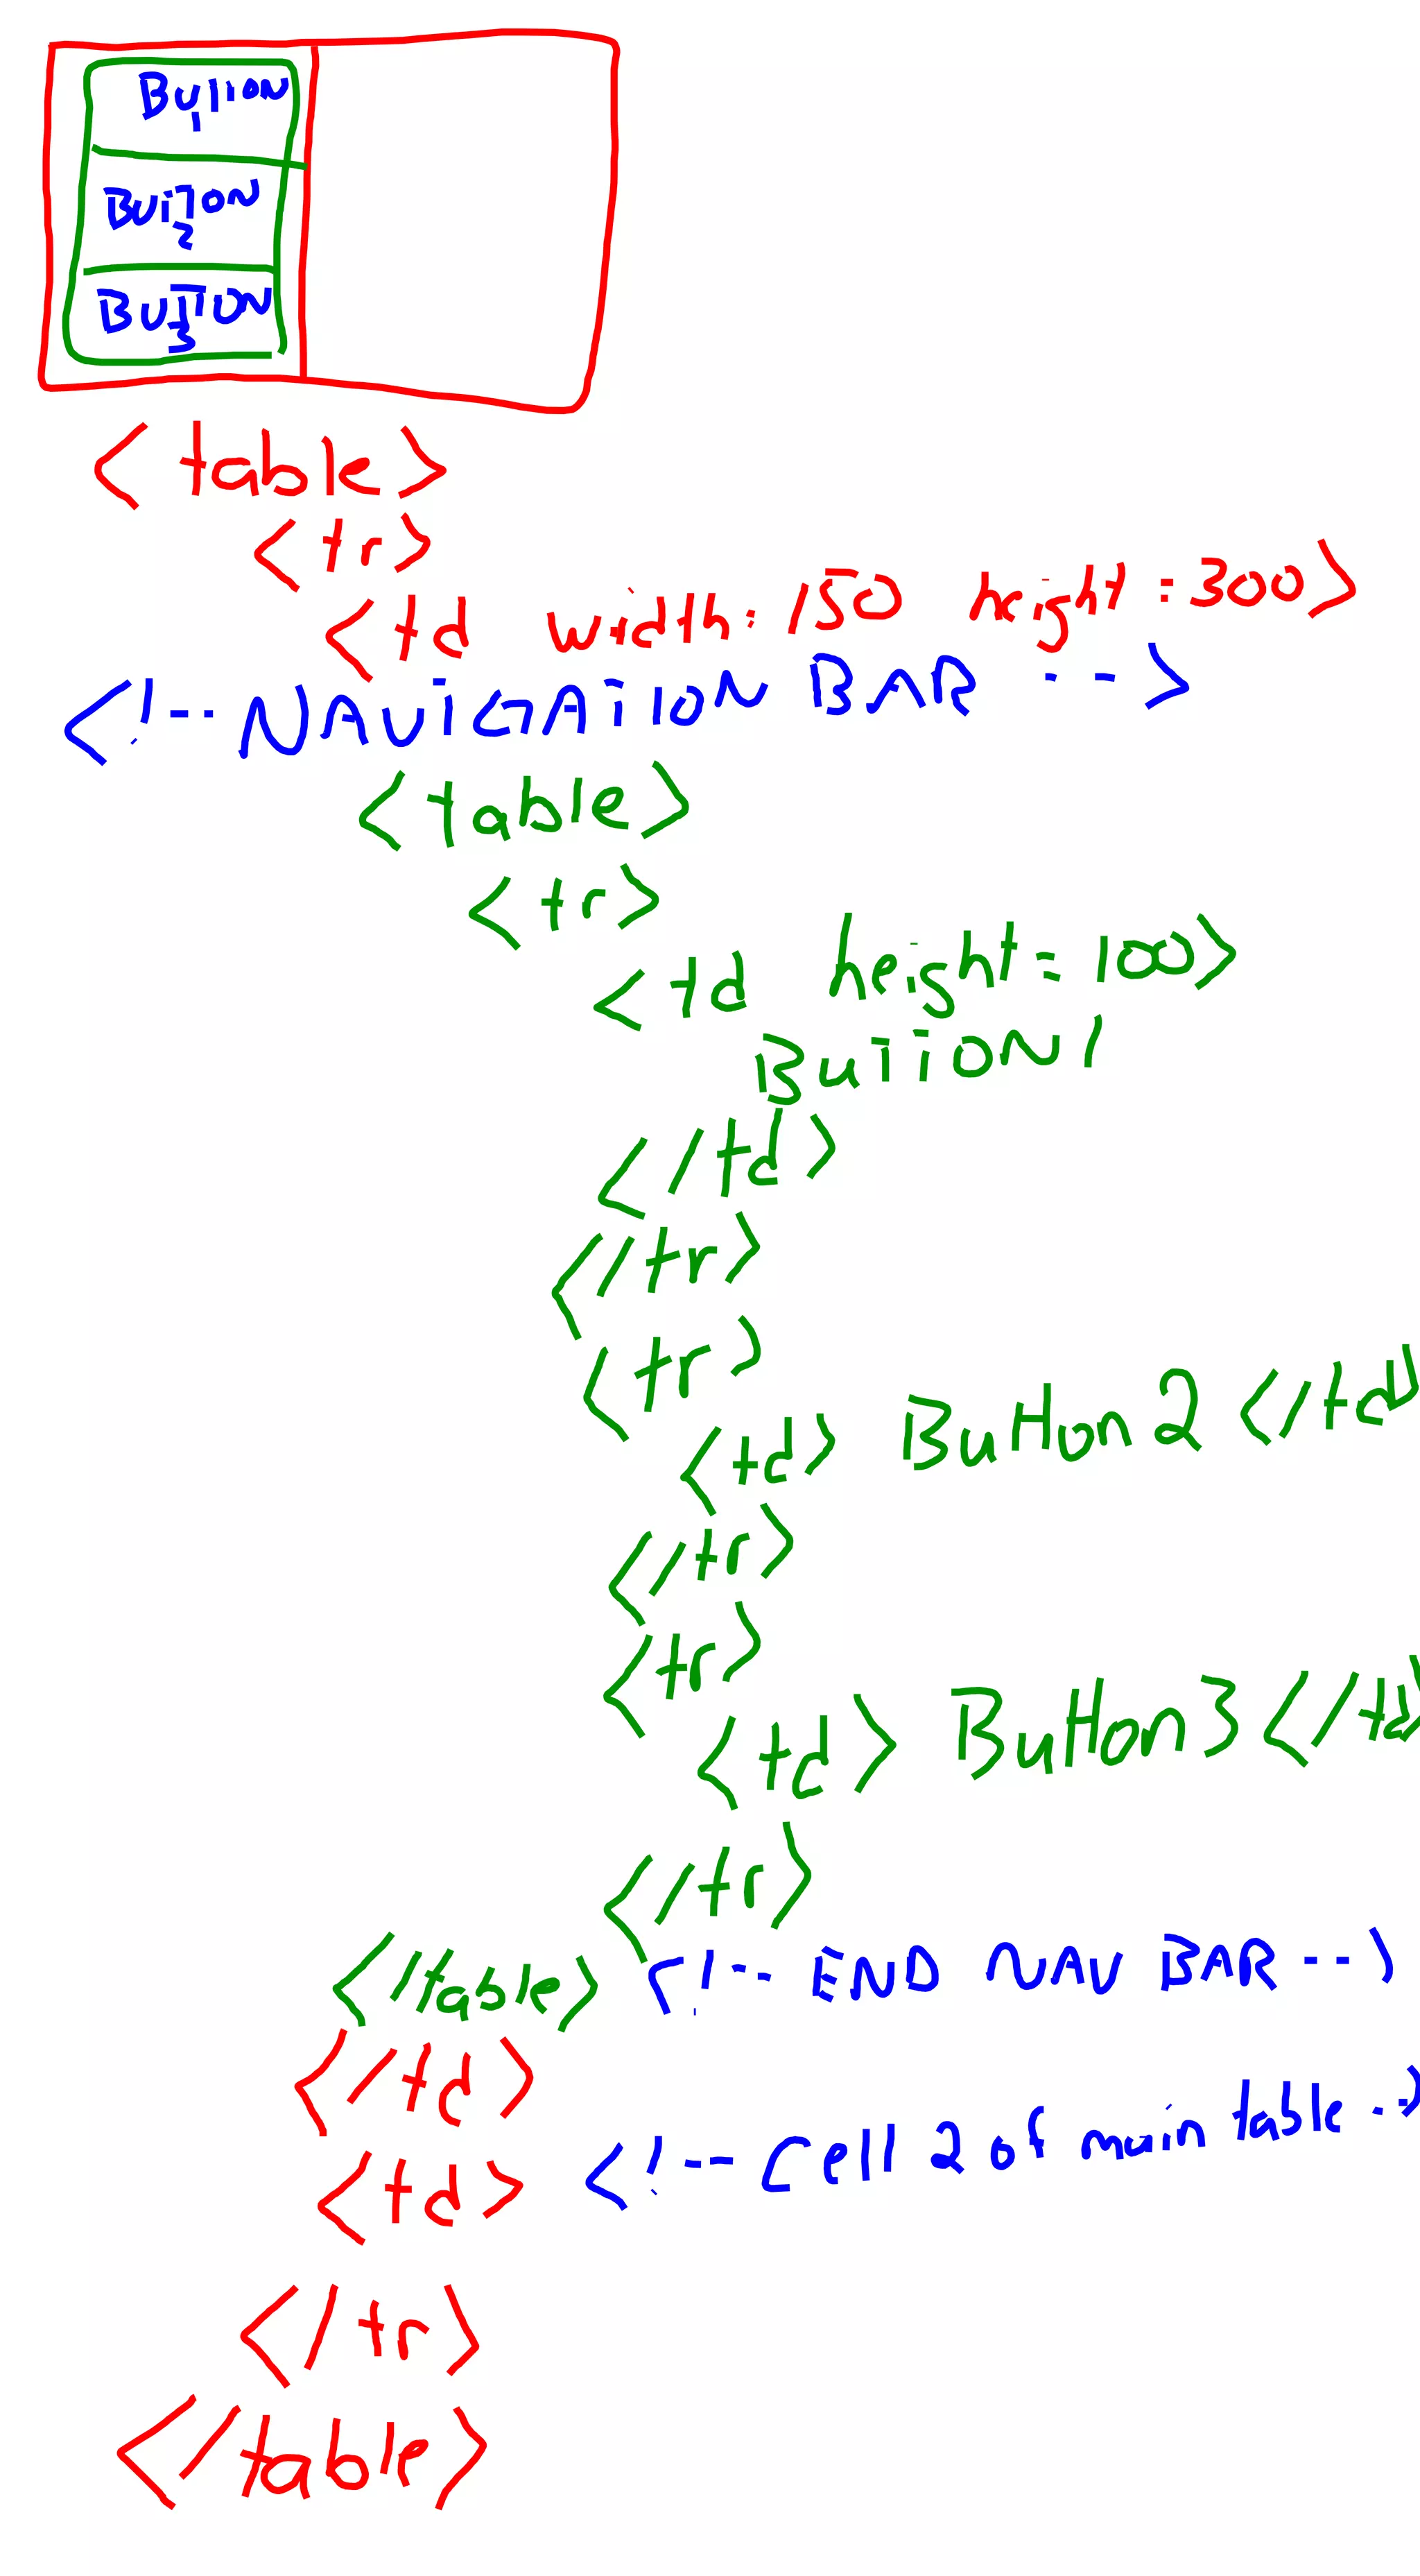 Button
1
Button
2
Button
3
<table>
<tr>
<td width=150 height=300>
<!-- NAViGATiON BAR -->
<table>
<tr>
<td height=100>
BuTTON 1
</td>
</tr>
<tr>
<td> Button 2 </td>
</tr>
<tr>
<td> Button 3 </td>
</tr>
</table> <!-- END NAV BAR -->
</td>
<td> <!-- Cell 2 of main table -->
</tr>
</table>